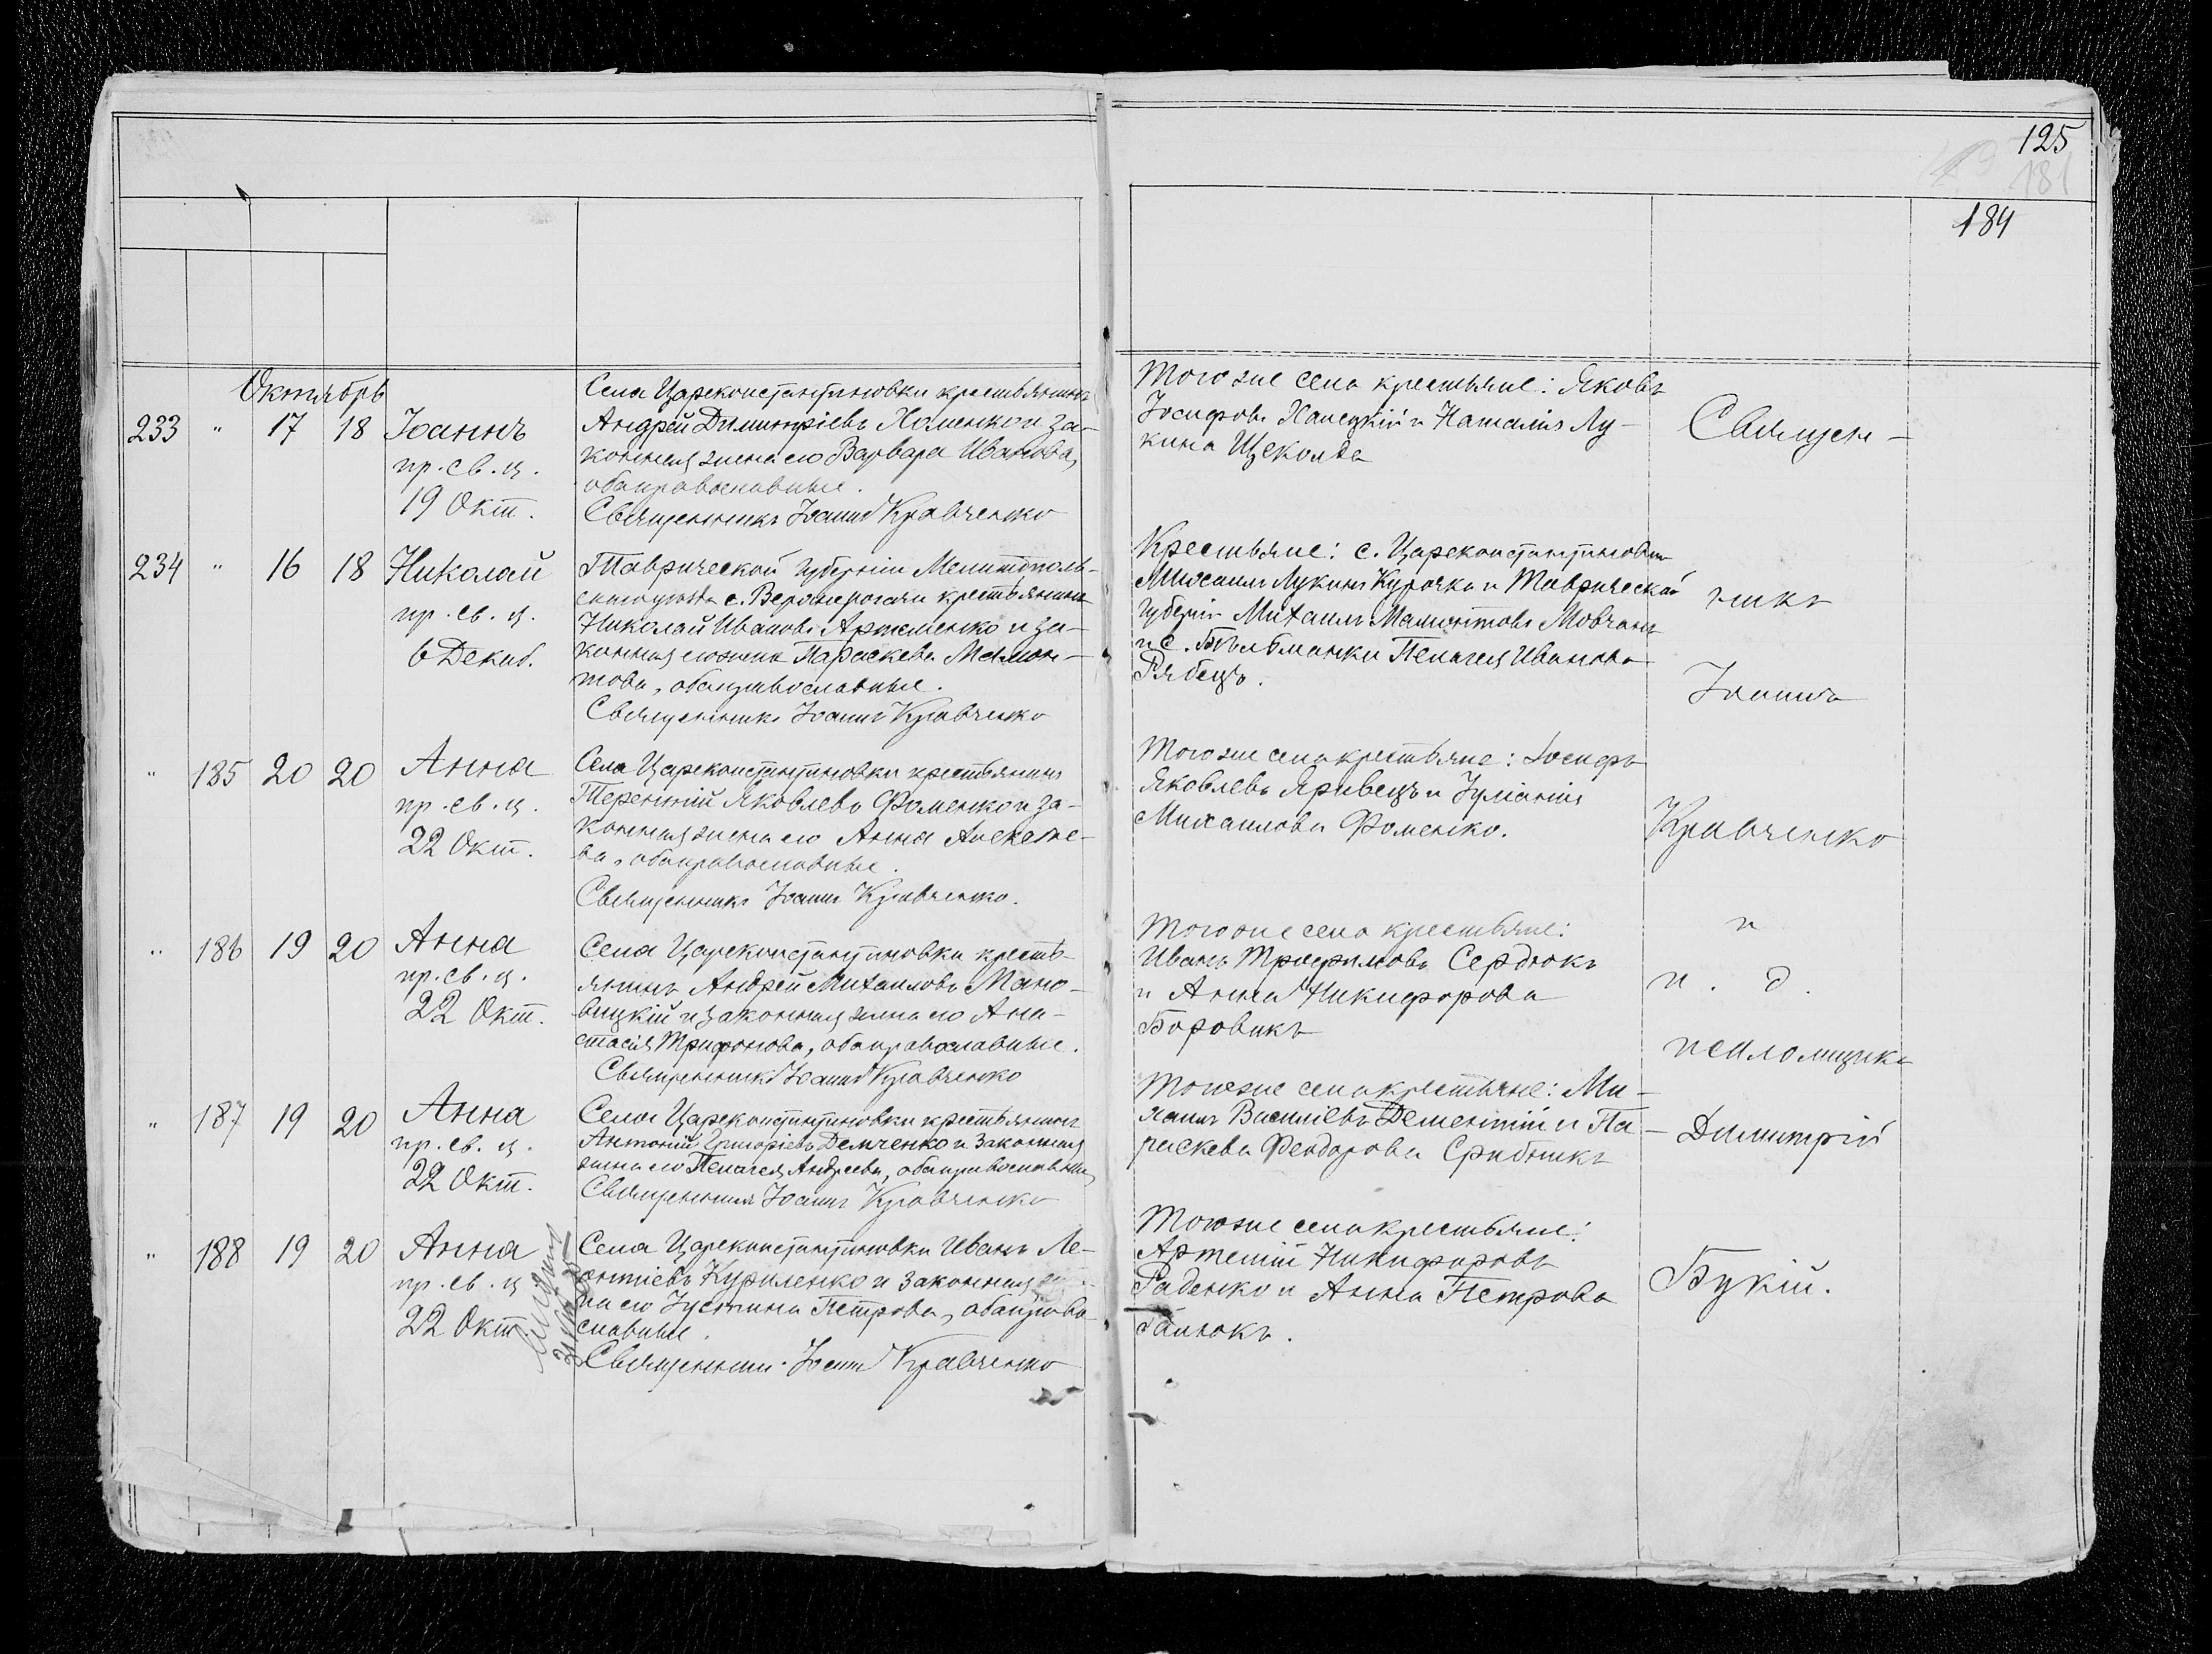 125
181
184
Октябрь
233 " 17 18 Іоаннъ
пр. св. ц.
19 Окт.
Села Цареконстантиновки крестьянинъ
Андрей Димитріевъ Хоменко и за-
конная жена его Варвара Иванова,
оба православные.
Священникъ Іоаннъ Кравченко
Того же села крестьяне: Яковъ
Іосифовъ Ханецкій и Наталія Лу-
кина Щеколда
234 " 16 18 Николай
пр. св. ц.
6 Декаб.
Таврической губерніи Мелитополь-
скаго уезда с. Верхнерогачи крестьянинъ
Николай Ивановъ Артеменко и за-
конная его жена Параскева Мамон-
това, оба православные.
Священникъ Іоаннъ Кравченко
Крестьяне: с. Цареконстантиновки
Михаилъ Лукинъ Курочка и Таврической
губерніи Михаилъ Мамонтовъ Мовчанъ
и с. Бѣльманки Пелагея Иванова
Рябецъ.
" 185 20 20 Анна
пр. св. ц.
22 Окт.
Села Цареконстантиновки крестьянинъ
Терентій Яковлевъ Фоменко и за-
конная жена его Анна Алексѣе-
ва, оба православные.
Священникъ Іоаннъ Кравченко.
Того же села крестьяне: Іосифъ
Яковлевъ Яривецъ и Іуліанія
Михаилова Фоменко.
" 186 19 20 Анна
пр. св. ц.
22 Окт.
Села Цареконстантиновки кресть-
янинъ Андрей Михаиловъ Мано-
вицкій и законная жена его Ана-
стасія Трифонова, оба православные.
Священникъ Іоаннъ Кравченко
Того же села крестьяне:
Иванъ Трофимовъ Сердюкъ
и Анна Никифорова
Боровикъ
" 187 19 20 Анна
пр. св. ц.
22 Окт.
Села Цареконстантиновки крестьянинъ
Антоній Григоріевъ Демченко и законная
жена его Пелагея Андреева, оба православные,
Священникъ Іоаннъ Кравченко
Того же села крестьяне: Ми-
хаилъ Василіевъ Дементій и Па-
раскева Феодорова Срибникъ
" 188 19 20 Анна
пр. св. ц.
22 Окт.
Села Цареконстантиновки Иванъ Ле-
онтіевъ Куриленко и законная же-
на его Іустина Петрова, оба право-
славные.
Священникъ Іоаннъ Кравченко
Того же села крестьяне:
Артемій Никифоровъ
Раденко и Анна Петрова
Галюкъ.
Священ-
никъ
Іоаннъ
Кравченко
и
и. д.
псаломщика
Димитрій
Букій.